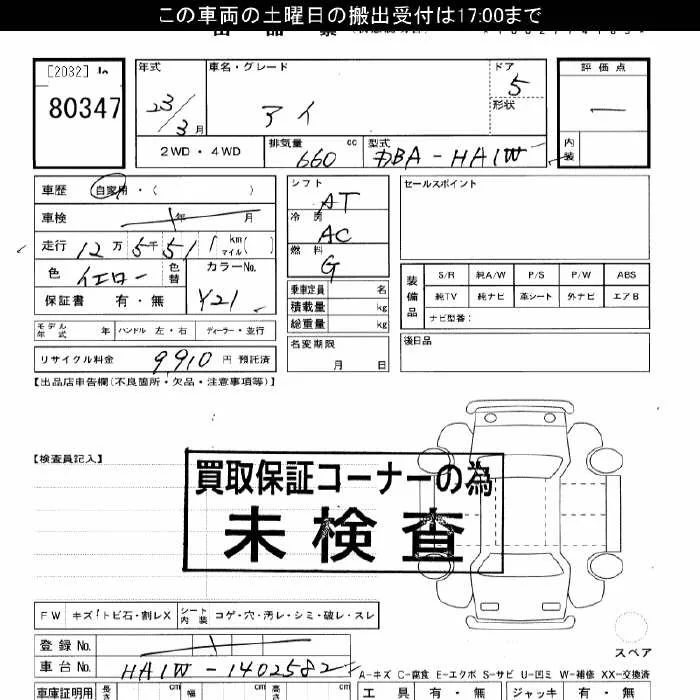 この車両の土曜日の搬出受付は17:00まで
[2032]
80347
年式 車名・グレード ドア 評価点
23/3月 アイ 5 形状 —
2WD・4WD 排気量 660 cc 型式 DBA-HA1W 内装
車歴 自家用・( )
車検 年 月
走行 12万 5千 51 km マイル( )
色 イエロー 色替 カラーNo. Y21
保証書 有・無
モデル年式 年 ハンドル 左・右 ディーラー・並行
リサイクル料金 9910 円 預託済
シフト AT
冷房 AC
燃料 G
乗車定員 名
積載量 kg
総重量 kg
名変期限 月 日
セールスポイント
装備品 S/R 純A/W P/S P/W ABS
純TV 純ナビ 革シート 外ナビ エアB
ナビ型番:
後日品
【出品店申告欄(不良箇所・欠品・注意事項等)】
【検査員記入】
買取保証コーナーの為
未検査
FW キズ・トビ石・割レX シート内装 コゲ・穴・汚レ・シミ・破レ・スレ
登録No.
車台No. HA1W-1402582
スペア
A-キズ C-腐食 E-エクボ S-サビ U-凹ミ W-補修 XX-交換済
車庫証明用 長さ cm 幅 cm 高さ cm 工具 有・無 ジャッキ 有・無